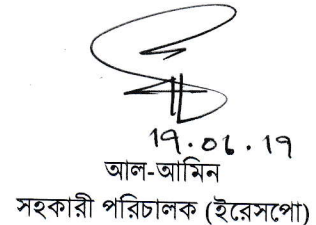 19.06.19
আল-আমিন
সহকারী পরিচালক (ইরেসপো)